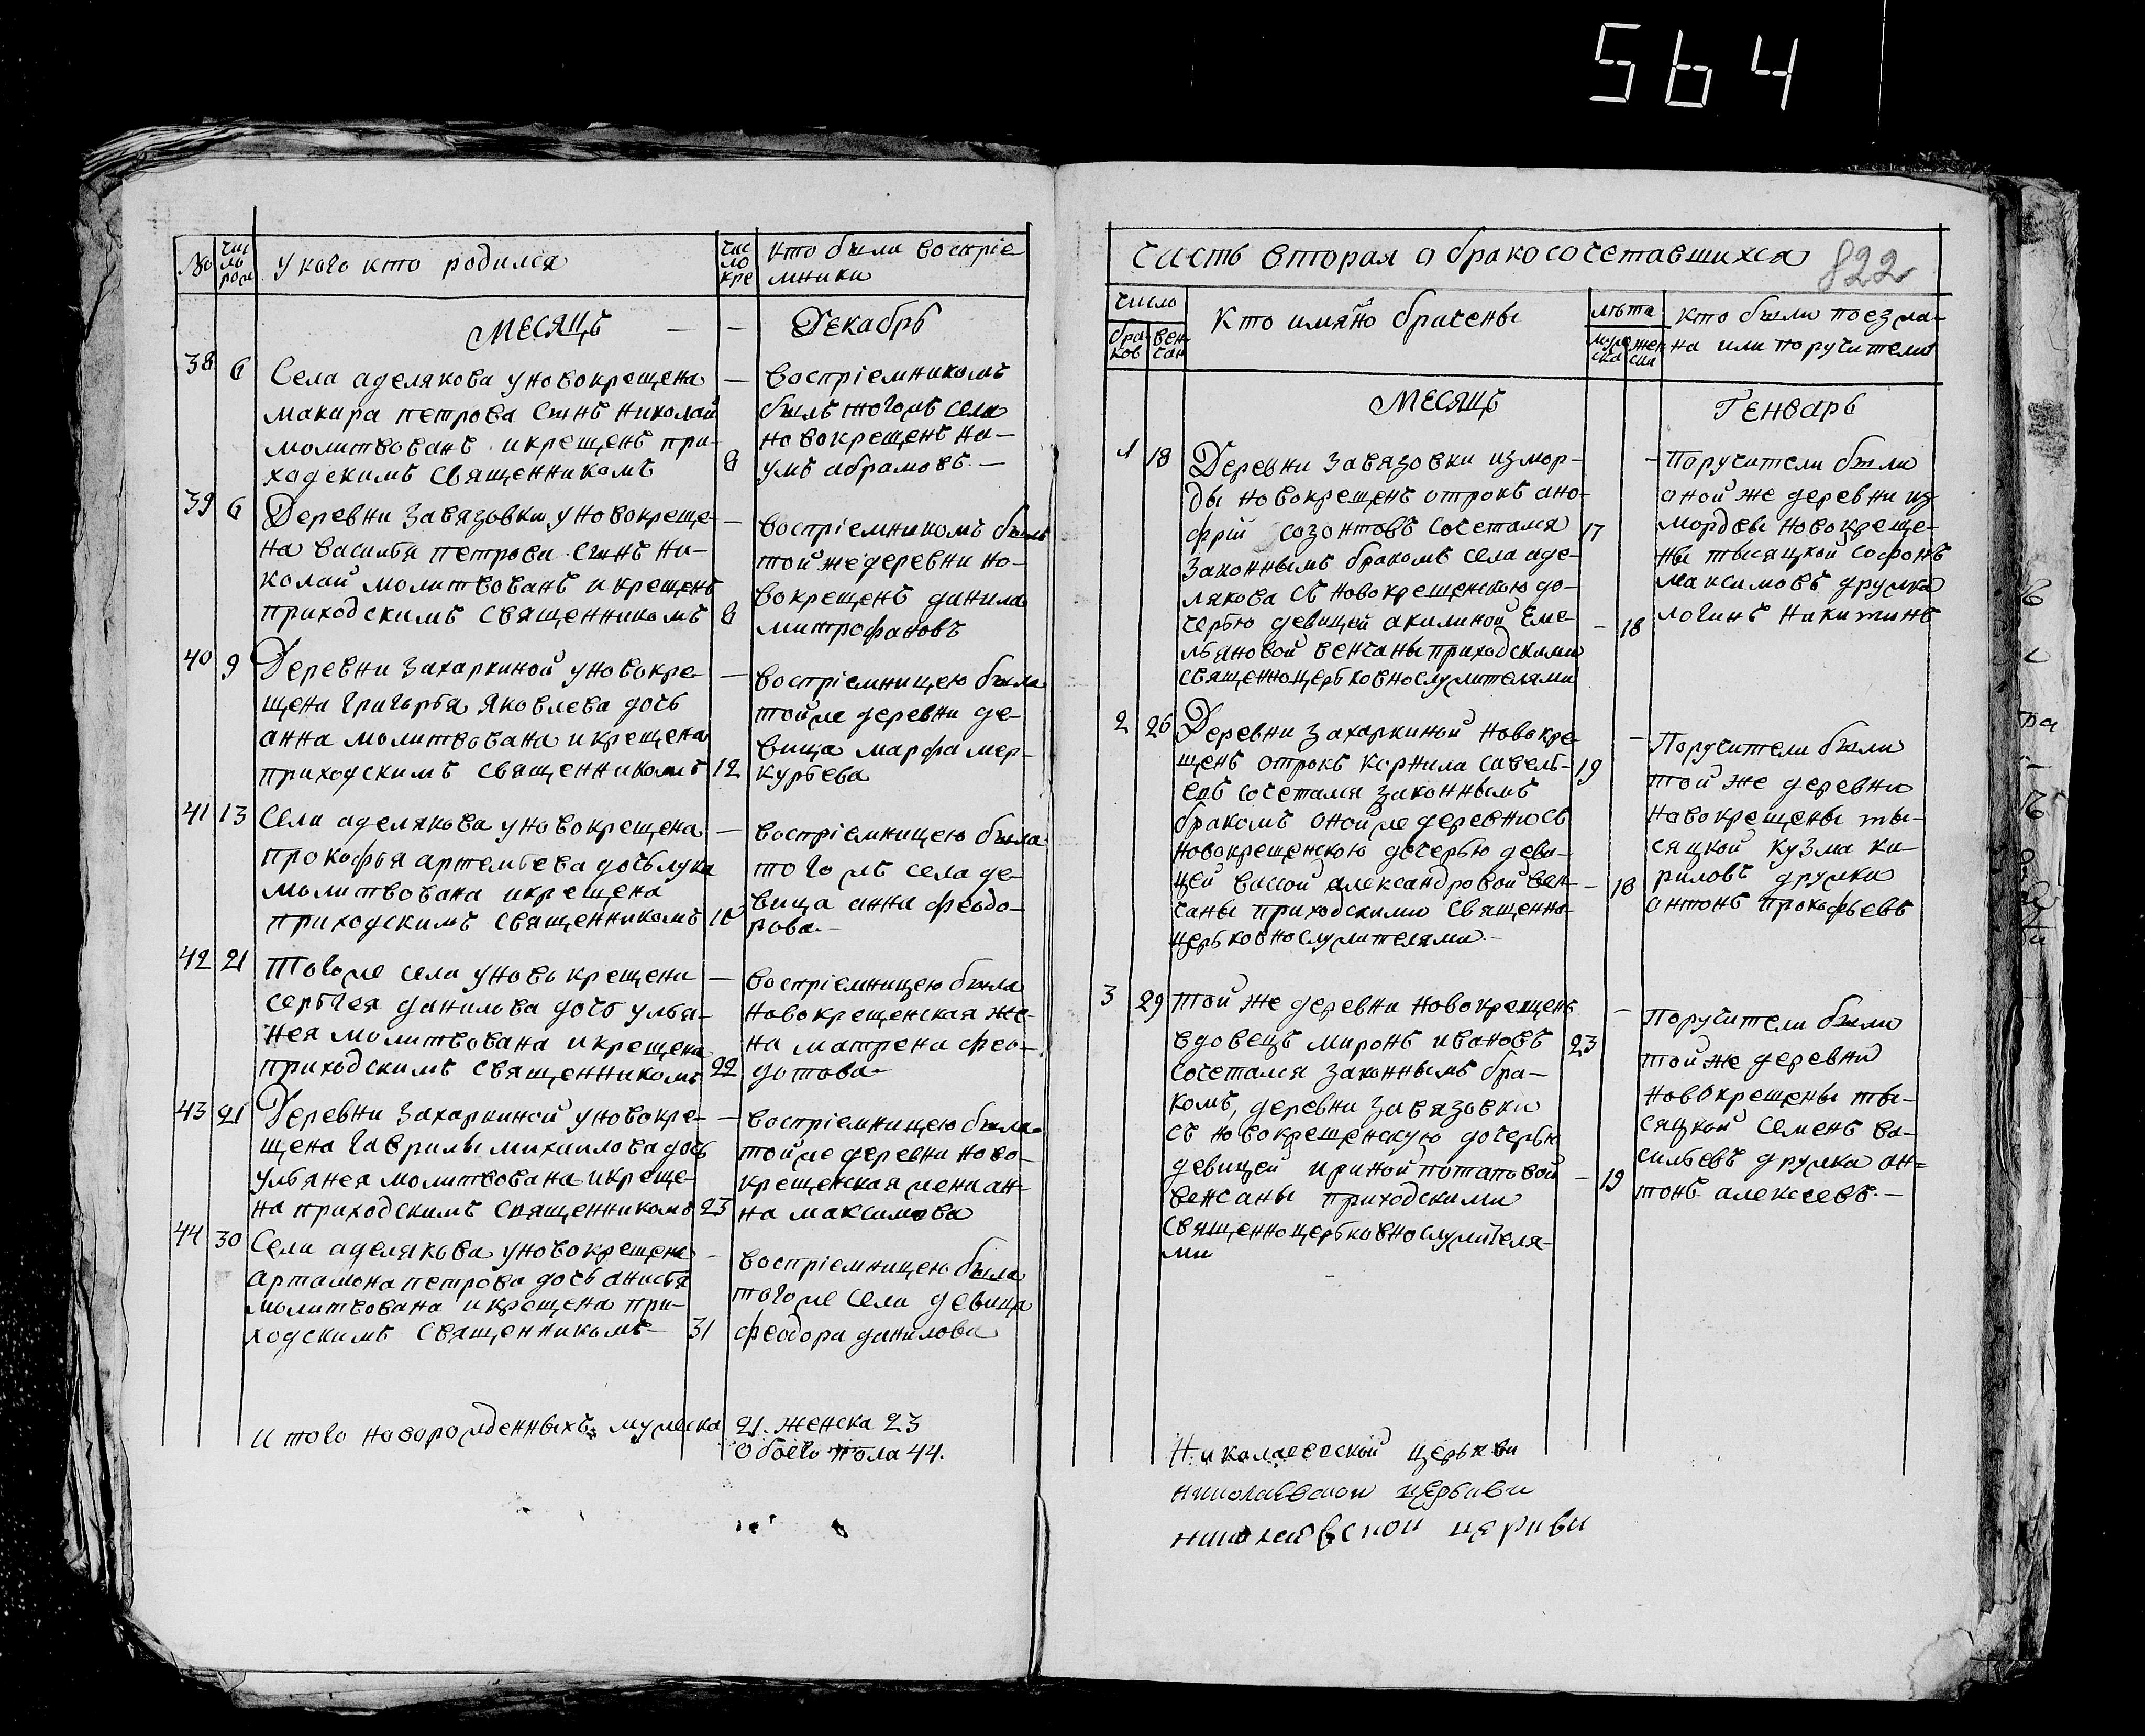 564
№
чис
ло
рож
У кого кто родился
чис
ло
кре
кто были воспріе
мники
МЕСЯЦЪ — — Декабрь
38 6 Села аделякова у новокрещена
макара петрова сынъ николай
молитвованъ и крещенъ при-
ходскимъ священникомъ 8
— воспріемникомъ
былъ тогожъ села
новокрещенъ на-
умъ абрамовъ. —
39 6 Деревни завязовки у новокреще-
на василья петрова сынъ ни-
колай молитвованъ и крещенъ
приходскимъ священникомъ 8
— воспріемникомъ былъ
той же деревни но-
вокрещенъ данила
митрофановъ
40 9 Деревни захаркиной у новокре-
щена григорья яковлева дочь
анна молитвована и крещена
приходскимъ священникомъ 12
— воспріемницею была
тойже деревни де-
вица марфа мер-
курьева
41 13 Села аделякова у новокрещена
прокофья артемьева дочь лука
молитвована и крещена
приходскимъ священникомъ
— воспріемницею была
тогожъ села де-
вица анна федо-
рова. —
42 21 Тогоже села у новокрещена
сергея данилова дочь улья-
нея молитвована и крещена
приходскимъ священникомъ 22
— воспріемницею была
новокрещенская же-
на матрена фео-
дотова
43 21 Деревни захаркиной у новокре-
щена гаврилы михаилова дочь
ульянея молитвована и креще-
на приходскимъ священникомъ 23
— воспріемницею была
тойже деревни ново-
крещенская жена ан-
на максимова
44 30 Села аделякова у новокрещена
артамона петрова дочь анисья
молитвована и крещена при-
ходскимъ священникомъ 31
— воспріемницею была
тогоже села девица
феодора данилова
Итого новорожденныхъ мужеска 21. женска 23
обоего пола 44.
часть вторая о бракосочетавшихся 822
число
бра-
ков
вен-
чан
Кто имяно брачены
лѣта
муже
ска
жен
ска
кто были поезжа-
на или поручители
МЕСЯЦЪ Генварь
1 18 Деревни завязовки из мор-
ды новокрещенъ отрокъ ано-
фрій созонтовъ сочетался 17
законнымъ бракомъ села аде-
лякова съ новокрещенскою до-
черью девицей акилиной еме- — 18
льяновой венчаны приходскими
священноцерковнослужителями
— Поручители были
оной же деревни из
мордвы новокреще-
ны тысяцкой софонъ
максимовъ дружка
логинъ никитинъ
2 26 Деревни захаркиной новокре-
щенъ отрокъ корнила савель- 19
евъ сочетался законнымъ
бракомъ онойже деревни съ
новокрещенскою дочерью деви-
цей васой александровой вен- — 18
чаны приходскими священно
церковнослужителями. —
— Поручители были
той же деревни
новокрещены ты-
сяцкой кузма ки-
риловъ дружка
антонъ прокофьевъ
3 29 той же деревни новокрещенъ
вдовецъ миронъ ивановъ 23
сочетался законнымъ бра-
комъ, деревни завязовки
съ новокрещенскую дочерью
девицей ириной потаповой — 19
венчаны приходскими
священноцерковнослужителя-
ми
— Поручители были
той же деревни
новокрещены ты-
сяцкой семенъ ва-
сильевъ дружка ан-
тонъ алексеевъ. —
Николаевской церькви
николаевской церькви
николаевской церкви